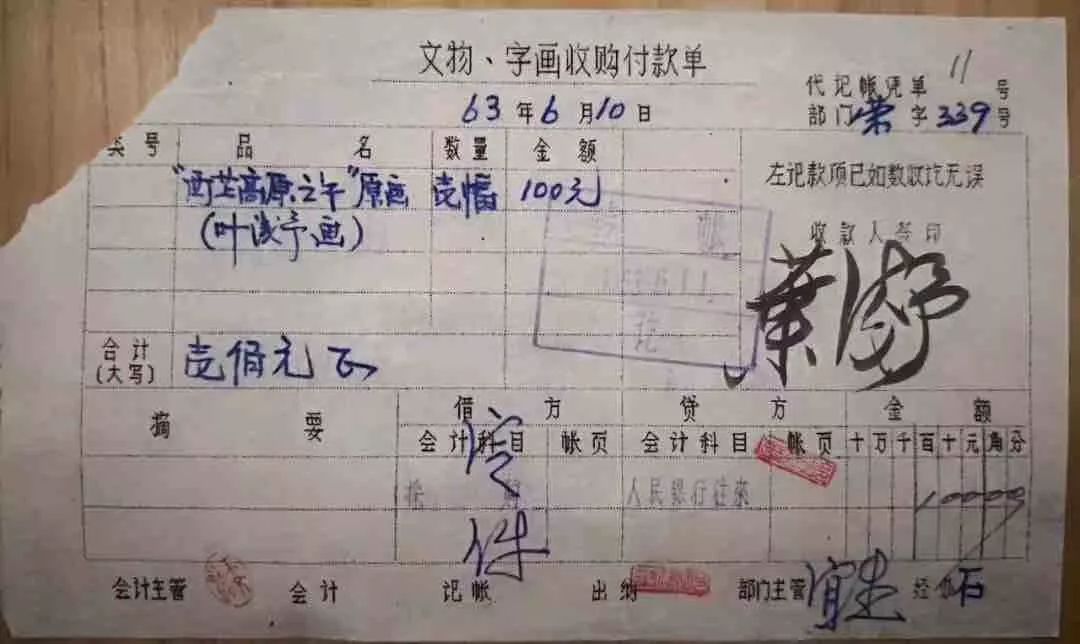 文物、字画收购付款单
63年6月10日
代记帐凭单 11 号
部门荣字339号
类号 品名 数量 金额
"西芷高原之午"原画 壱幅 100元
(叶浅予画)
左记款项已如数收讫无误
收款人签印
叶浅予
合计
(大写) 壱佰元正
摘要 借方 贷方 金额
会计科目 帐页 会计科目 帐页 十万千百十元角分
人民银行往来 10000
会计主管 会计 记帐 出纳 部门主管 经收 石